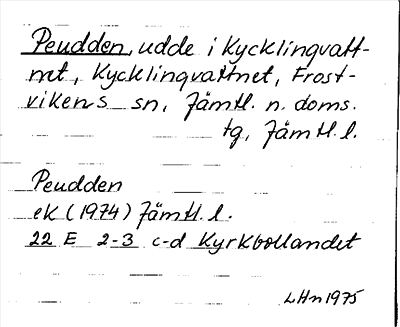 Peudden, udde i Kycklingvatt-
net, Kycklingvattnet, Frost-
vikens sn, Jämtl. n. doms.
tg, Jämtl. l.
Peudden
ek (1974) Jämtl. l.
22 E 2-3 c-d Kyrkbollandet
LHn 1975